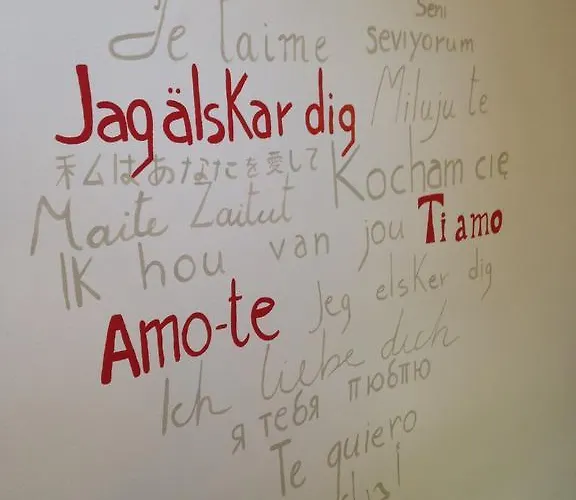 Je t'aime
Seni
seviyorum
Jag älskar dig
Miluju te
私はあなたを愛して
Kocham cię
Maite Zaitut
Ik hou van jou
Ti amo
Amo-te
Jeg elsker dig
Ich liebe dich
я тебя люблю
Te quiero